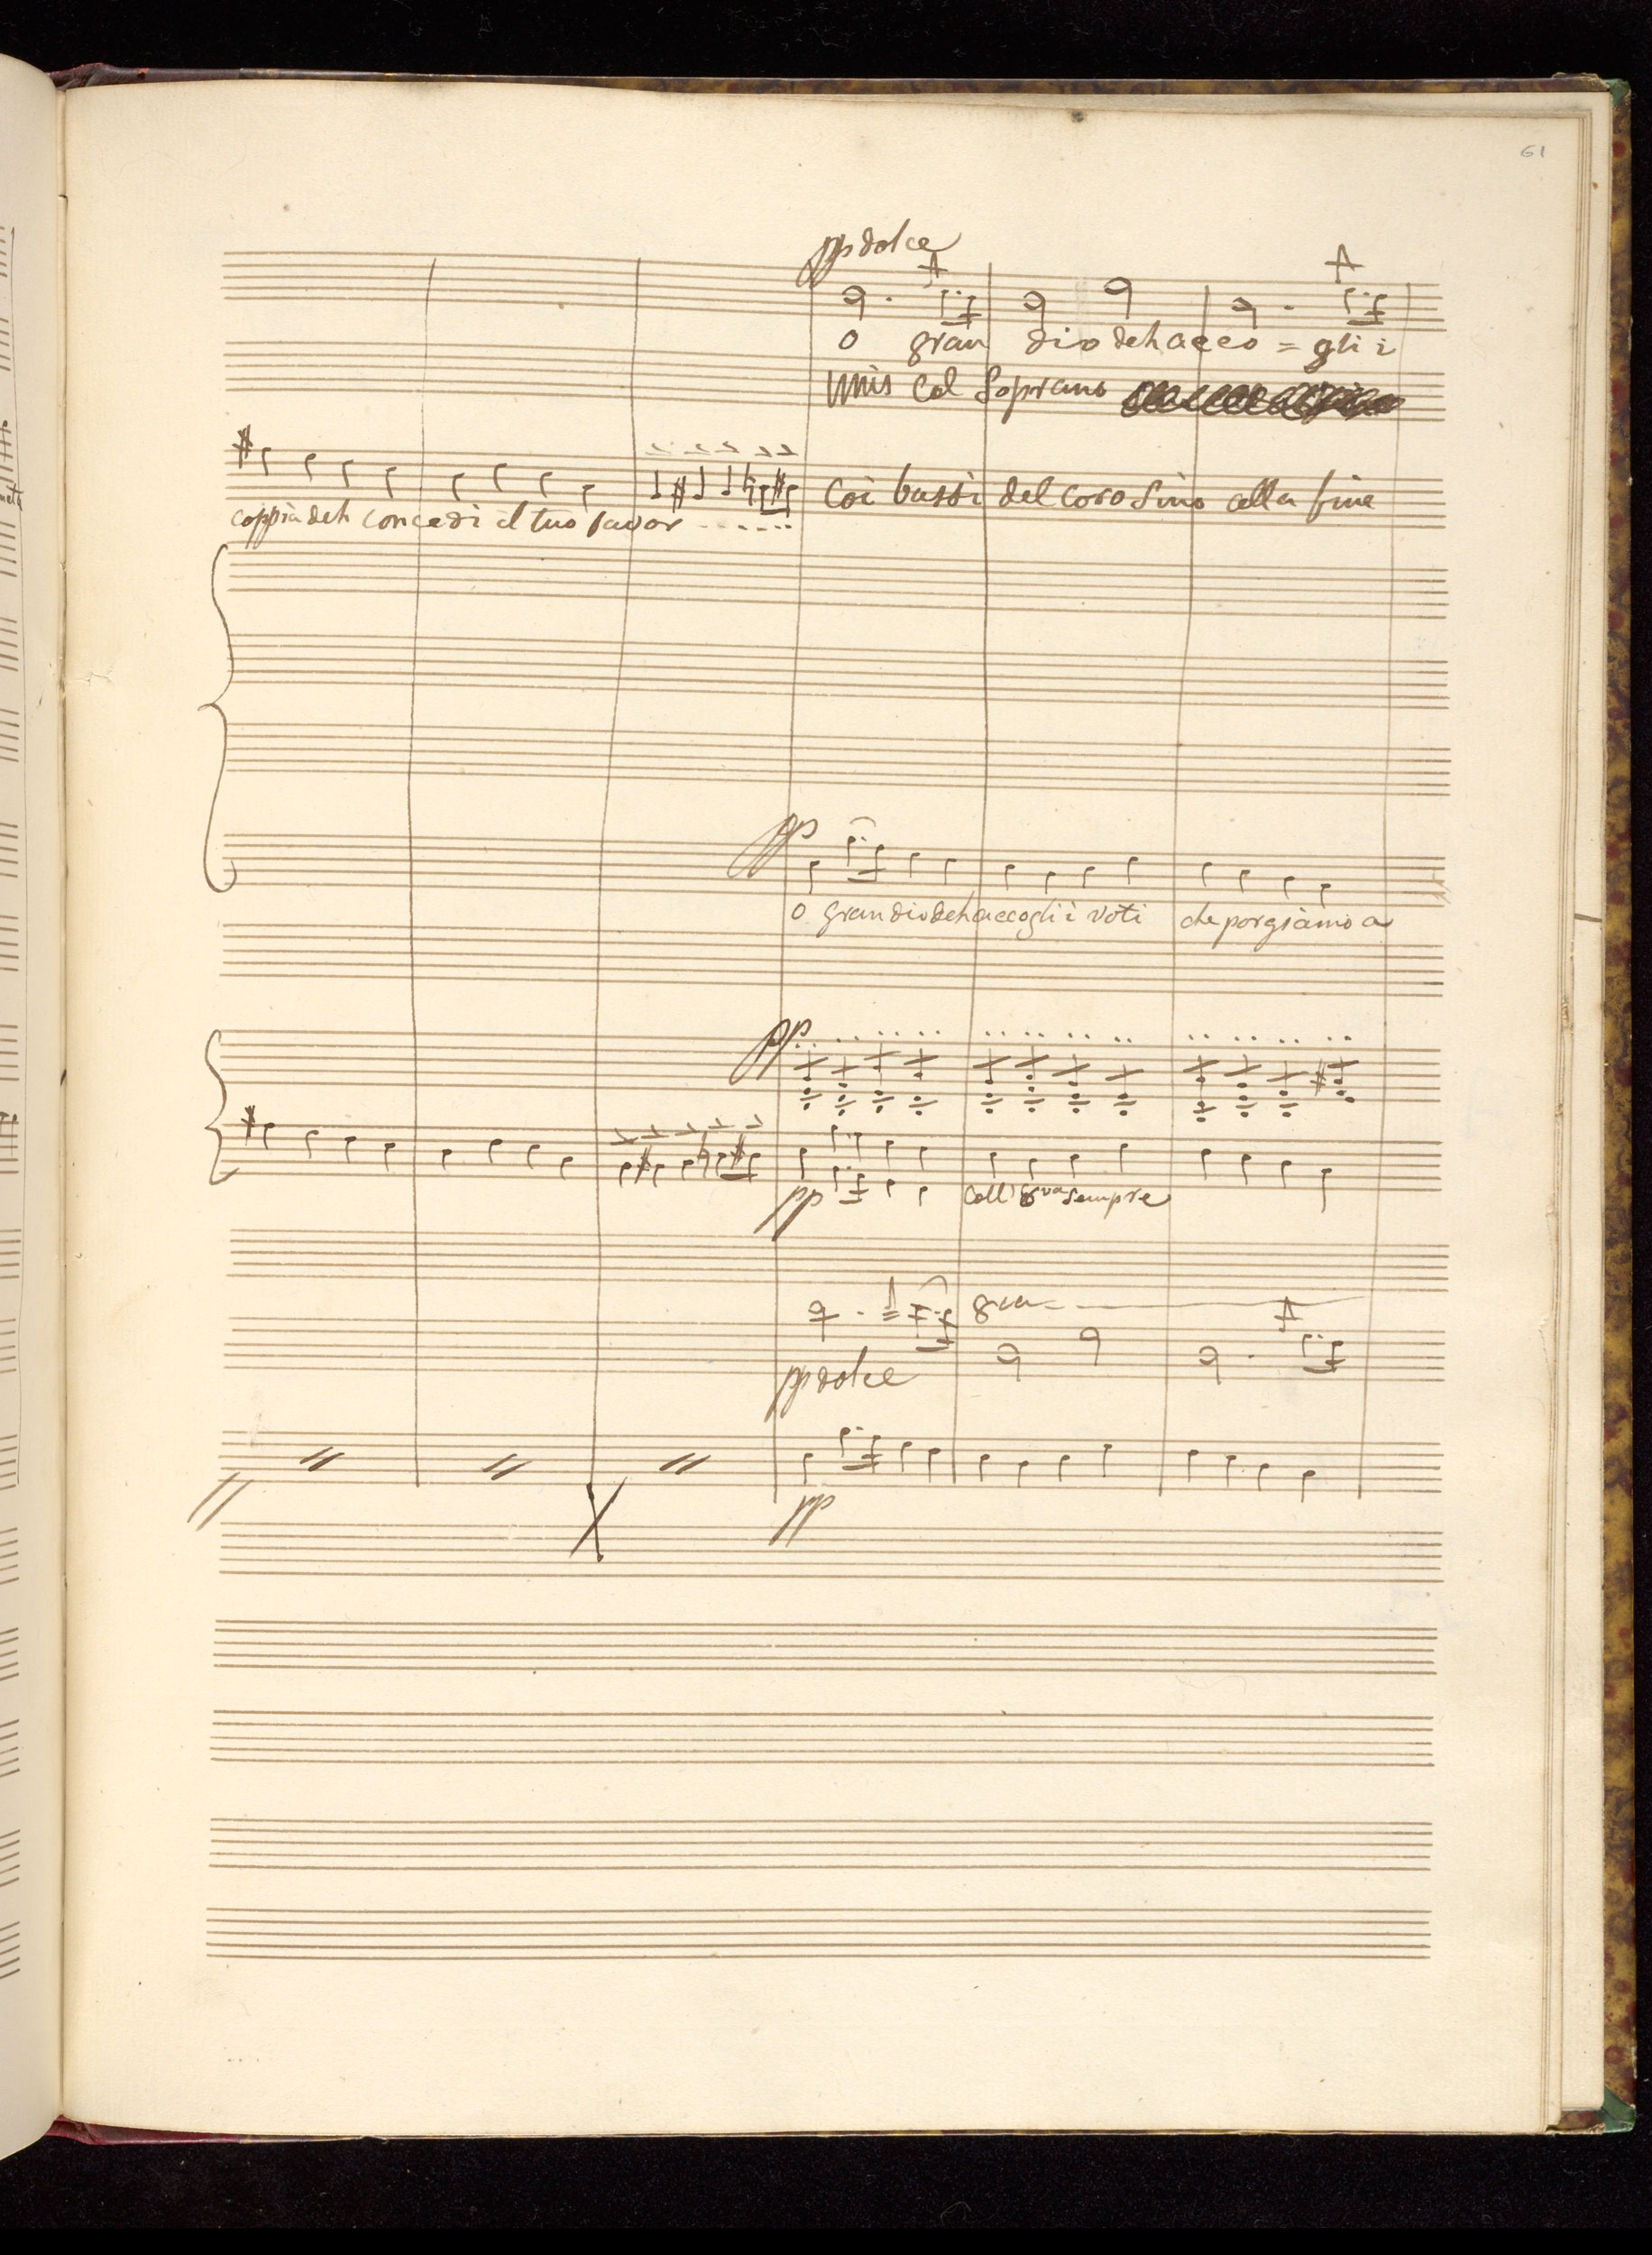 61
pp dolce
o gran dio deh acco = gli i
unis col Soprano
coppia deh concedi il tuo favor
Coi bassi del coro sino alla fine
pp
o gran dio deh accogli i voti che porgiamo a
pp
pp
coll' 8va sempre
8va
pp dolce
pp